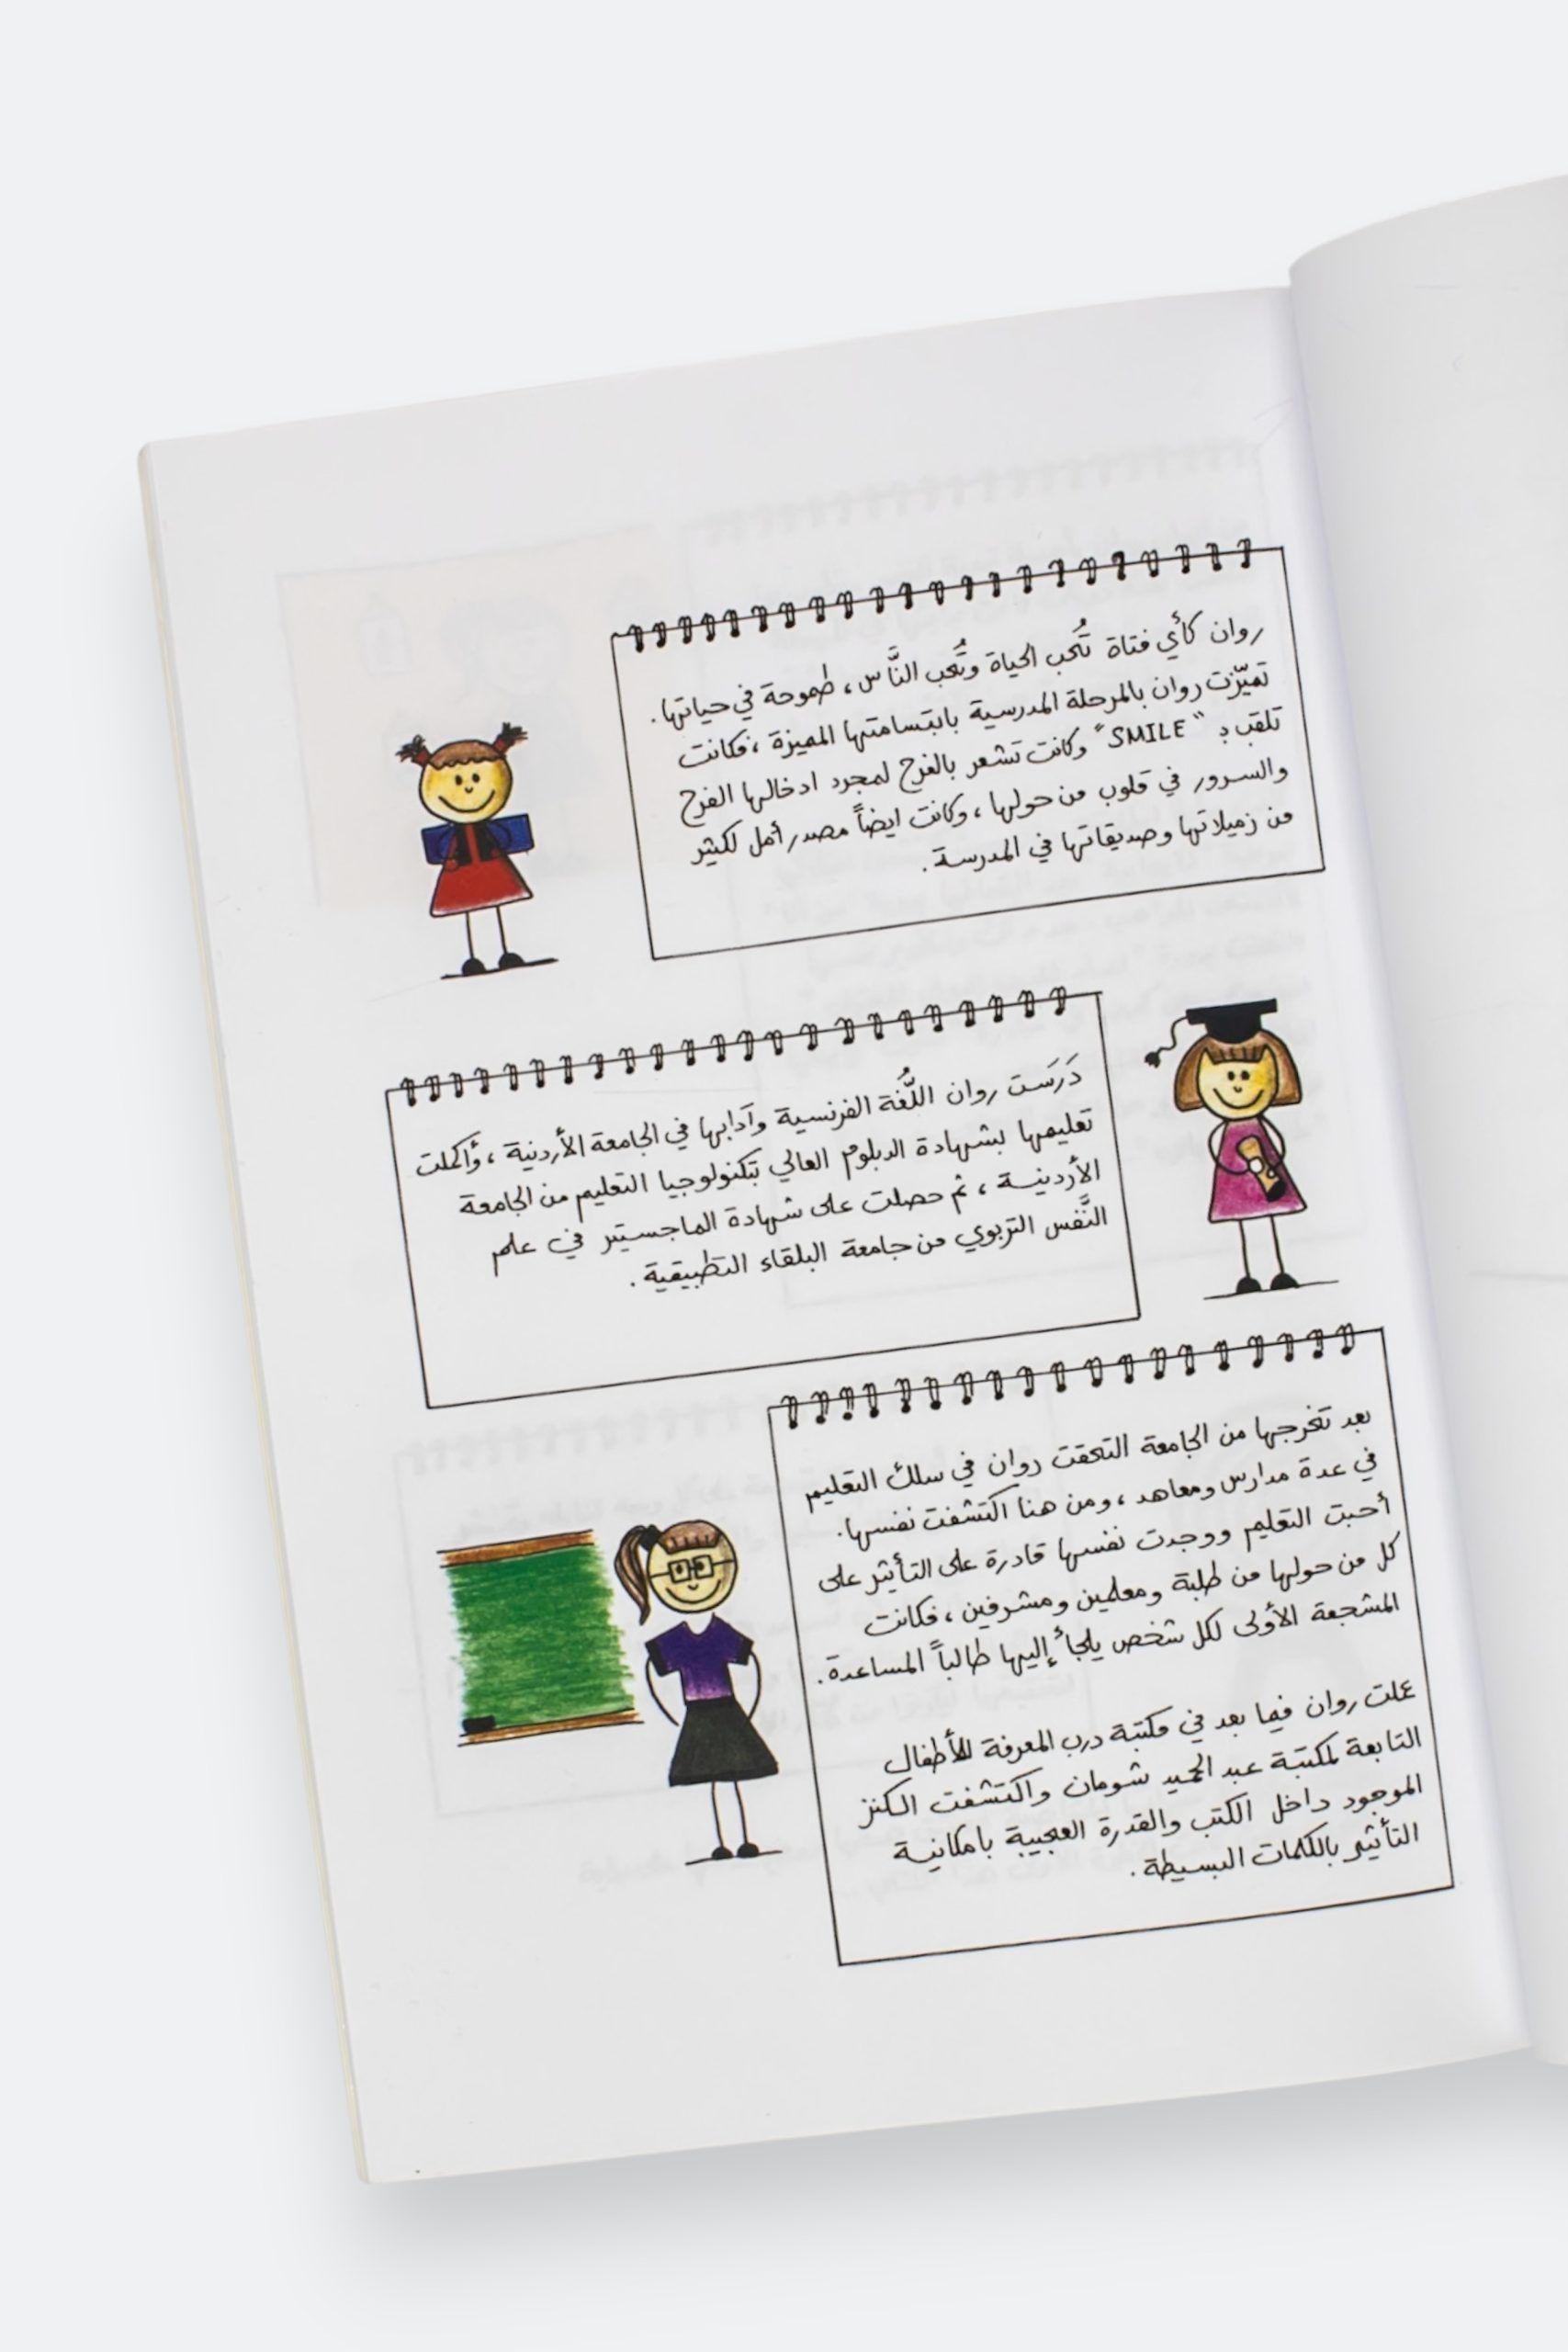 روان كأي فتاة تُحب الحياة وتُحب النَّاس، طموحة في حياتها.
تميّزت روان بالمرحلة المدرسية بابتسامتها المميزة، فكانت
تلقب بـ "SMILE" وكانت تشعر بالفرح لمجرد ادخالها الفرح
والسرور في قلوب من حولها، وكانت ايضاً مصدر أمل لكثير
من زميلاتها وصديقاتها في المدرسة.
دَرَست روان اللُّغة الفرنسية وآدابها في الجامعة الأردنية، وأكملت
تعليمها بشهادة الدبلوم العالي بتكنولوجيا التعليم من الجامعة
الأردنية، ثم حصلت على شهادة الماجستير في علم
النَّفس التربوي من جامعة البلقاء التطبيقية.
بعد تخرجها من الجامعة التحقت روان في سلك التعليم
في عدة مدارس ومعاهد، ومن هنا اكتشفت نفسها.
أحبت التعليم ووجدت نفسها قادرة على التأثير على
كل من حولها من طلبة ومعلمين ومشرفين، فكانت
المشجعة الأولى لكل شخص يلجأ إليها طالباً المساعدة.
عملت روان فيما بعد في مكتبة درب المعرفة للأطفال
التابعة لمكتبة عبد الحميد شومان واكتشفت الكنز
الموجود داخل الكتب والقدرة العجيبة بامكانية
التأثير بالكلمات البسيطة.